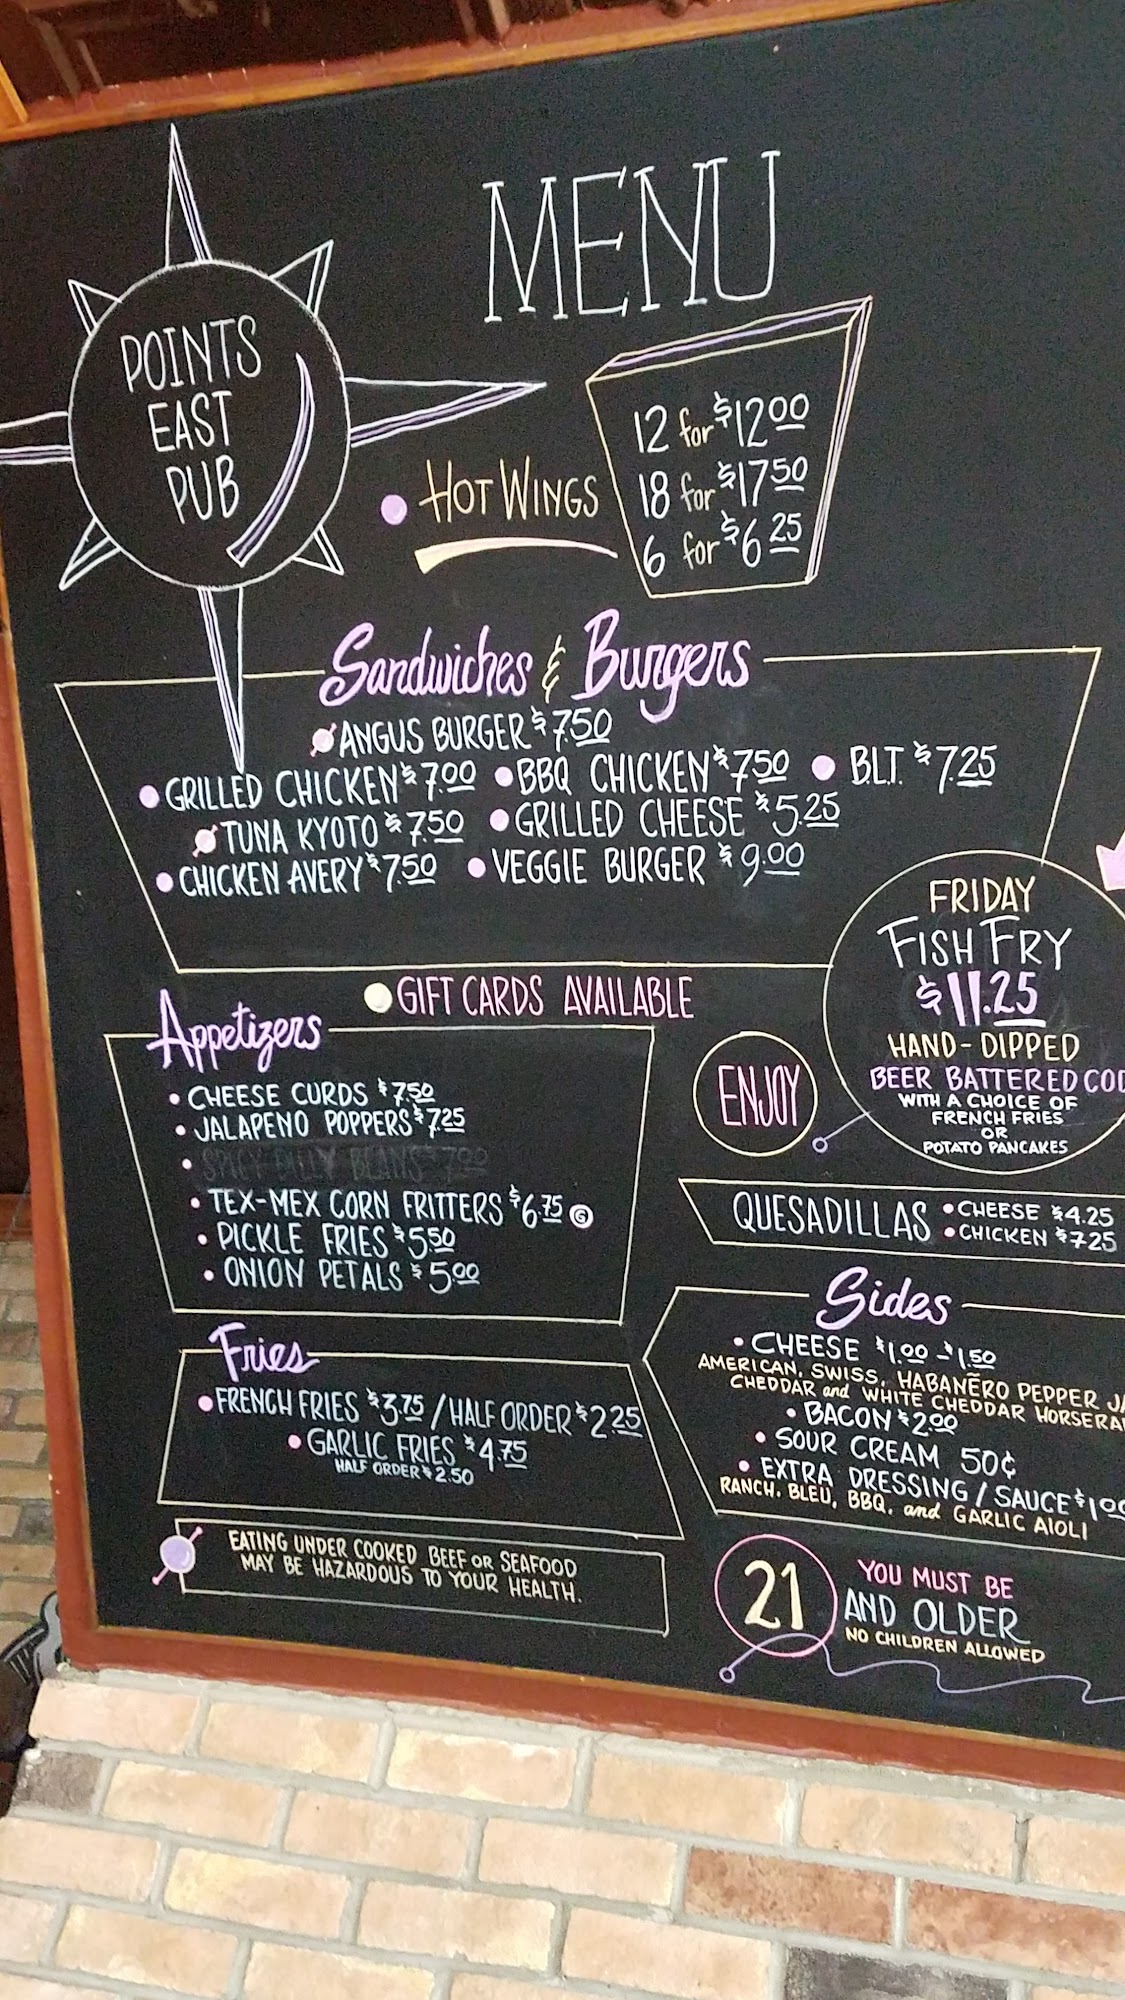 MENU
POINTS
EAST
PUB
HOT WINGS
12 for $12.00
18 for $17.50
6 for $6.25
Sandwiches & Burgers
ANGUS BURGER $7.50
GRILLED CHICKEN $7.00 BBQ CHICKEN $7.50 B.L.T. $7.25
TUNA KYOTO $7.50 GRILLED CHEESE $5.25
CHICKEN AVERY $7.50 VEGGIE BURGER $9.00
FRIDAY
FISH FRY
$11.25
HAND-DIPPED
BEER BATTERED COD
WITH A CHOICE OF
FRENCH FRIES
OR
POTATO PANCAKES
GIFT CARDS AVAILABLE
ENJOY
Appetizers
CHEESE CURDS $7.50
JALAPENO POPPERS $7.25
TEX-MEX CORN FRITTERS $6.75 G
PICKLE FRIES $5.50
ONION PETALS $5.00
QUESADILLAS
CHEESE $4.25
CHICKEN $7.25
Fries
FRENCH FRIES $3.75 / HALF ORDER $2.25
GARLIC FRIES $4.75
HALF ORDER $2.50
Sides
CHEESE $1.00 - $1.50
AMERICAN, SWISS, HABAÑERO PEPPER JA
CHEDDAR and WHITE CHEDDAR HORSERA
BACON $2.00
SOUR CREAM 50¢
EXTRA DRESSING / SAUCE $1.00
RANCH, BLEU, BBQ, and GARLIC AIOLI
EATING UNDER COOKED BEEF OR SEAFOOD
MAY BE HAZARDOUS TO YOUR HEALTH.
YOU MUST BE
21 AND OLDER
NO CHILDREN ALLOWED